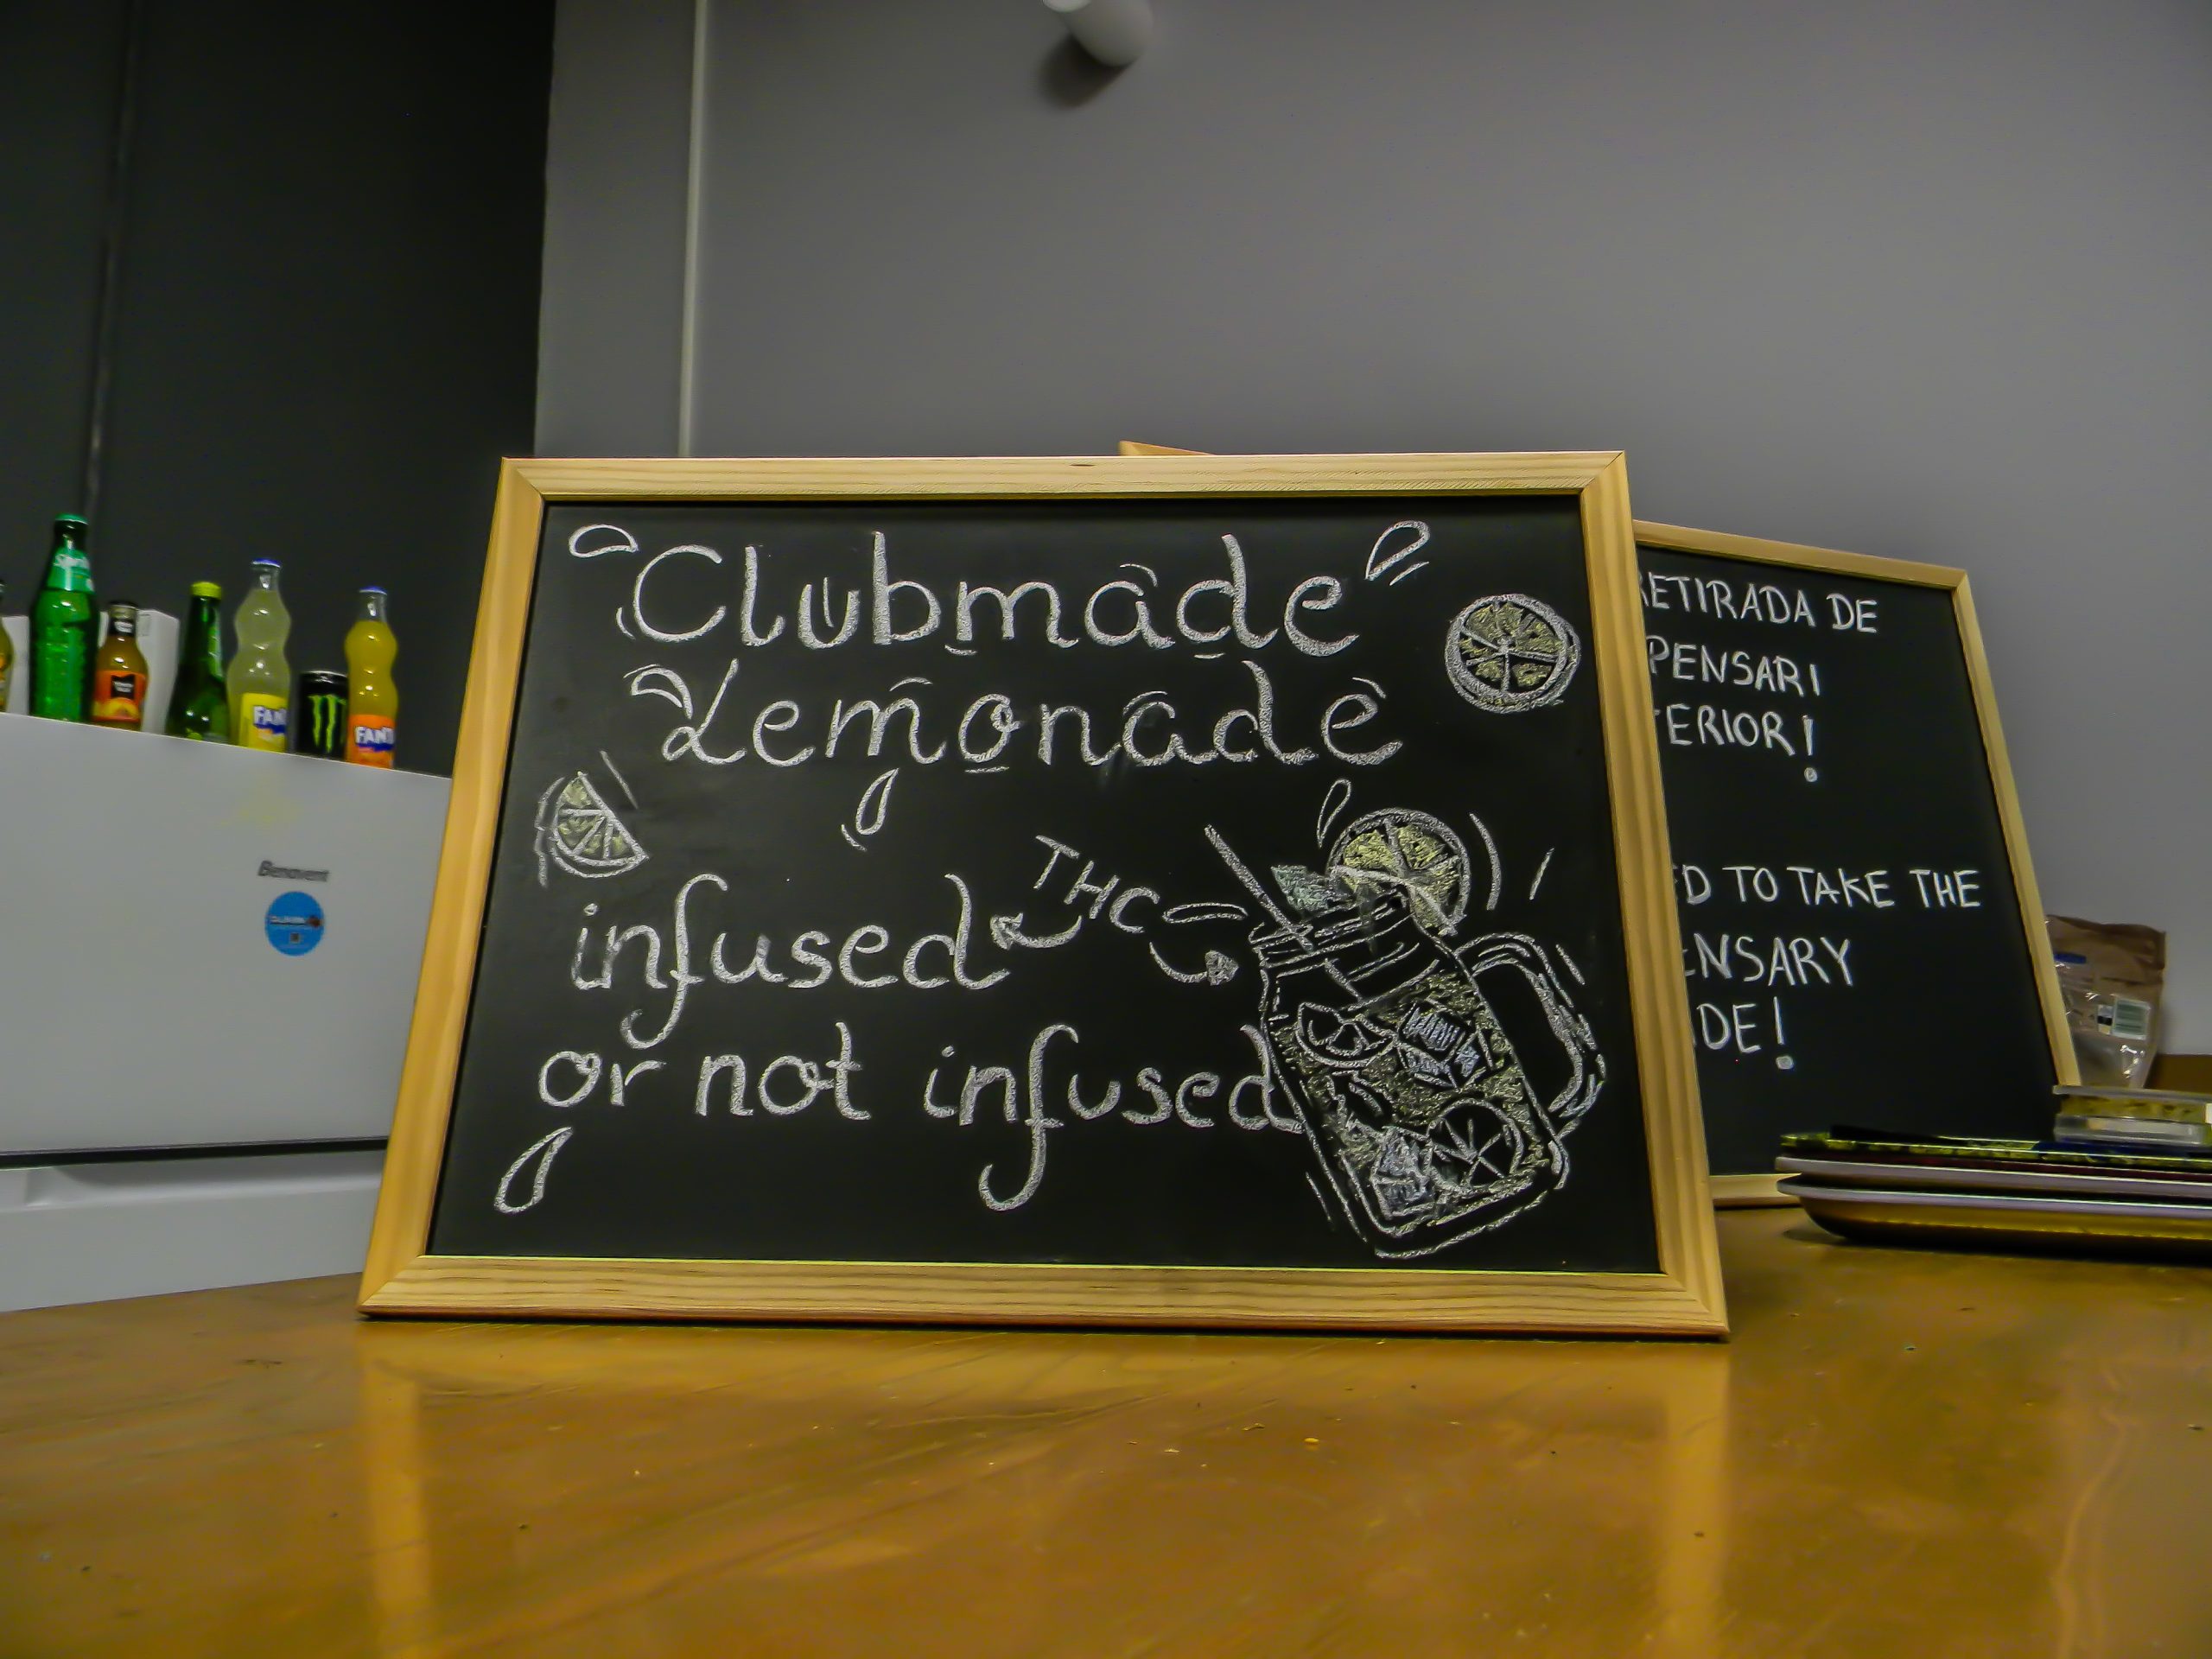 Clubmade
Lemonade
THC
infused
or not infused
RETIRADA DE
PENSARI
ERIOR!
D TO TAKE THE
ENSARY
DE!
Sprite
FAN
FANT
Benavent